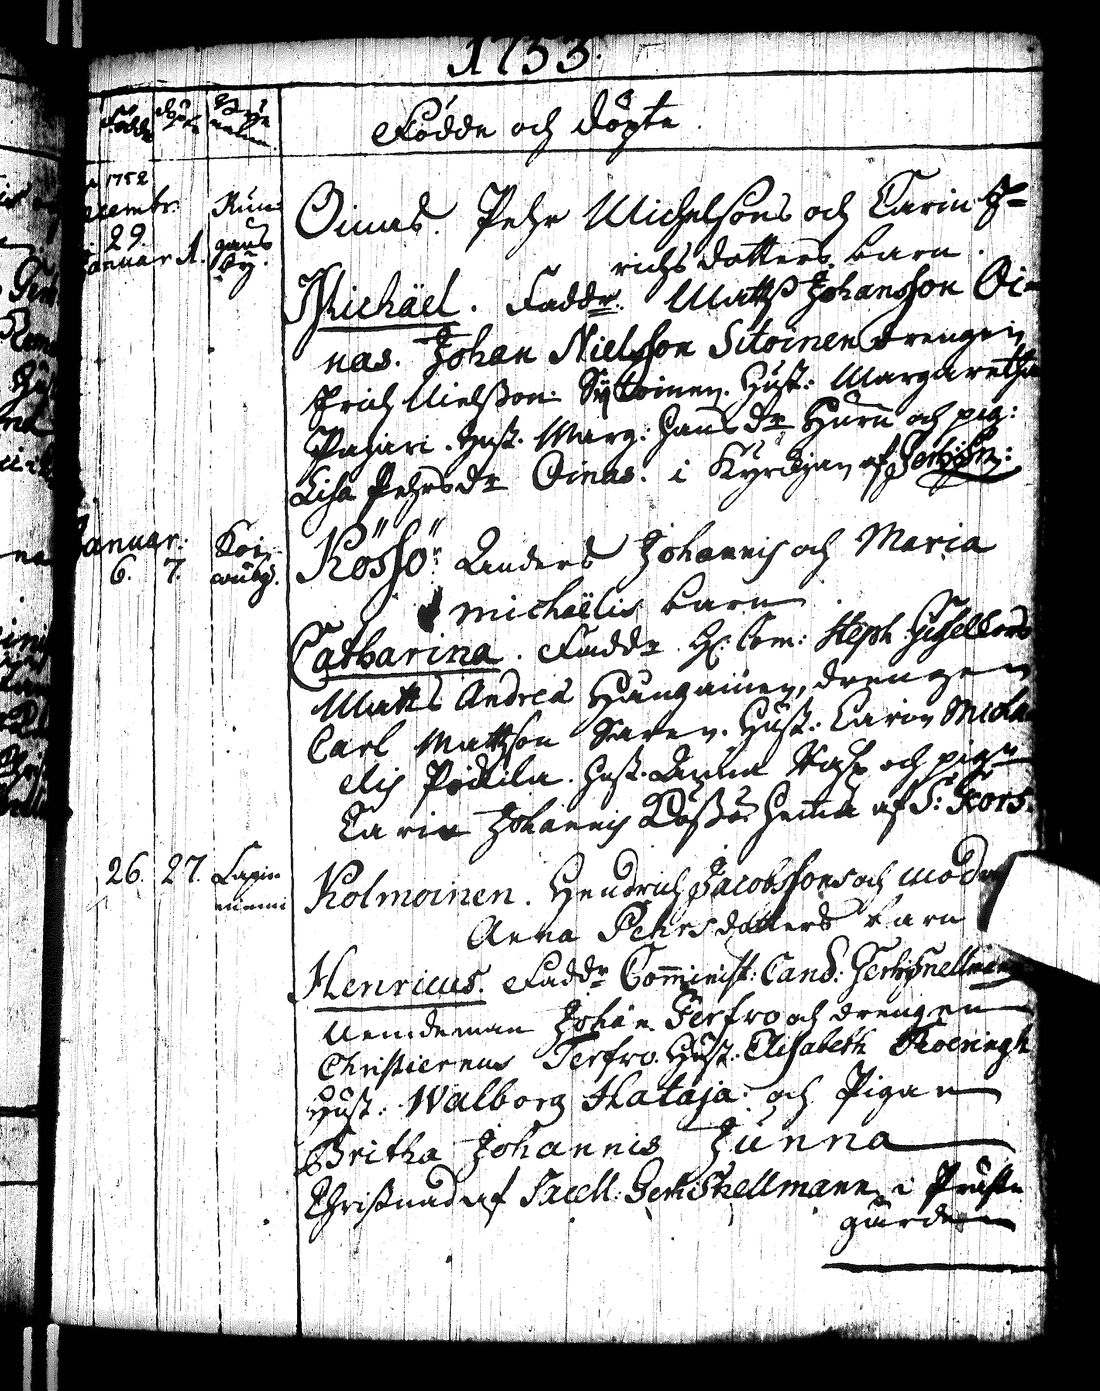 1753.
Födde
Döpte
Byenamn
Födde och döpte
1752
Decembr. 29.
Januar 1.
Kun
gans
by.
Oinas. Pehr Michelsons och Carin E=
richs dotters barn.
Michäel. Faddr. Matts Johansson Oi=
nas. Johan Nielsson Sitoinen drengen
Erich Nielsson Sijtoinen. Hust: Margaretha
Pajari. Hust. Marg: Hansdr Huru och pig:
Lisa Pehrsdr Oinas. i Kyrckjan af
Januar:
6. 7.
Koi
Kössö: Anders Johannis och Maria
michaëlis barn
Catharina. Faddr H: Com: Steph:
Matts Andreæ Hangainen, drengen
Carl Mattsson Saren. Hust: Carin Micha
elis Pöckila. Hust. Anna och pign
Carin Johannis Kössö. Hema af S:
26. 27. Lapin
niemi
Kolmoinen. Hendrich Jacobssons och modr
Anna Pehrsdotters barn
Henricus. Faddr Comminist: Cand: Gerh: Snellman
Nemdeman Johan Terfro och drengen
Christiernus Terfro. Hust: Elisabeth
Hust: Walborg Hataja och Pigan
Britha Johannis Junna
Christnad af Sacell: Gerh: Snellmann, i Präste
gården